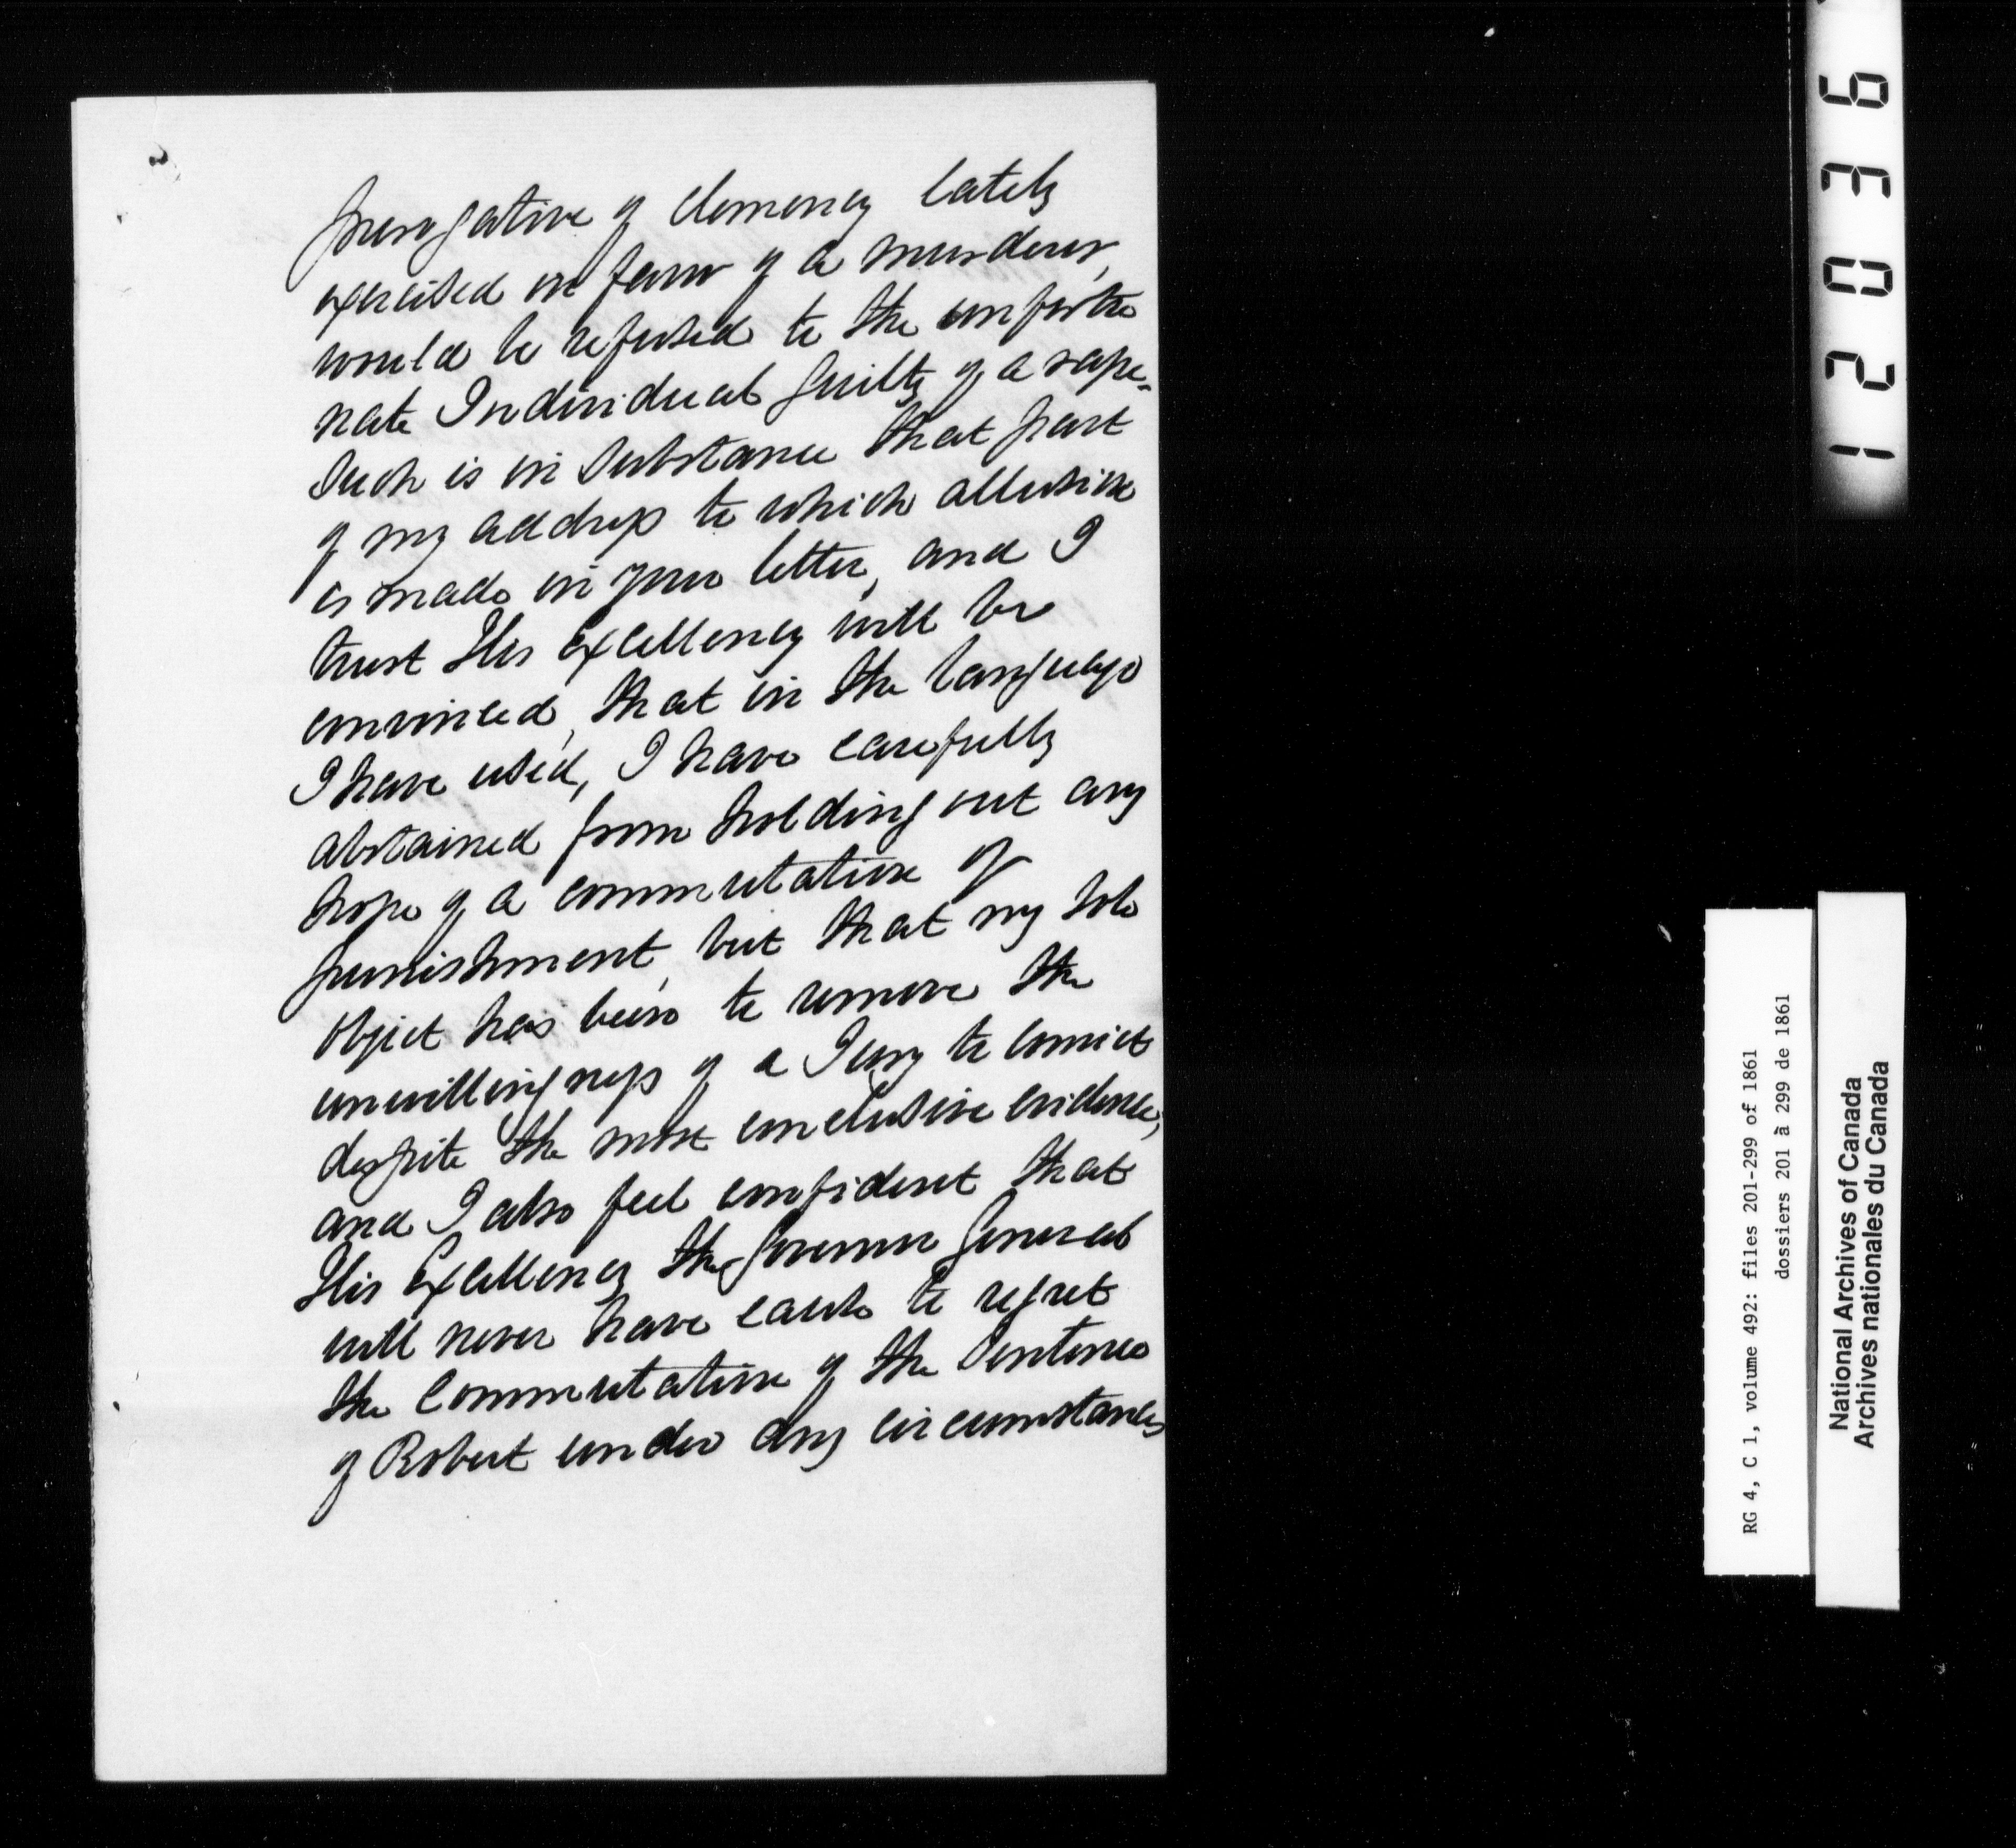 prerogative of clemency lately
exercised in favor of a murderer,
would be refused to the unfortu
nate Individual guilty of a rape-
Such is in Substance that part
of my address to which allusion
is made in your letter, and I
trust His Excellency will be
convinced, that in the language
I have used, I have carefully
abstained from holding out any
hope of a commutation of
punishment, but that my sole
object has been to remove the
unwillingness of a Jury to convict
despite the most conclusive evidence,
and I also feel confident that
His Excellency the Governor General
will never have cause to regret
the Commutation of the Sentence
of Robert under any circumstances
12036
RG 4, C 1, volume 492: files 201-299 of 1861
dossiers 201 à 299 de 1861
National Archives of Canada
Archives nationales du Canada